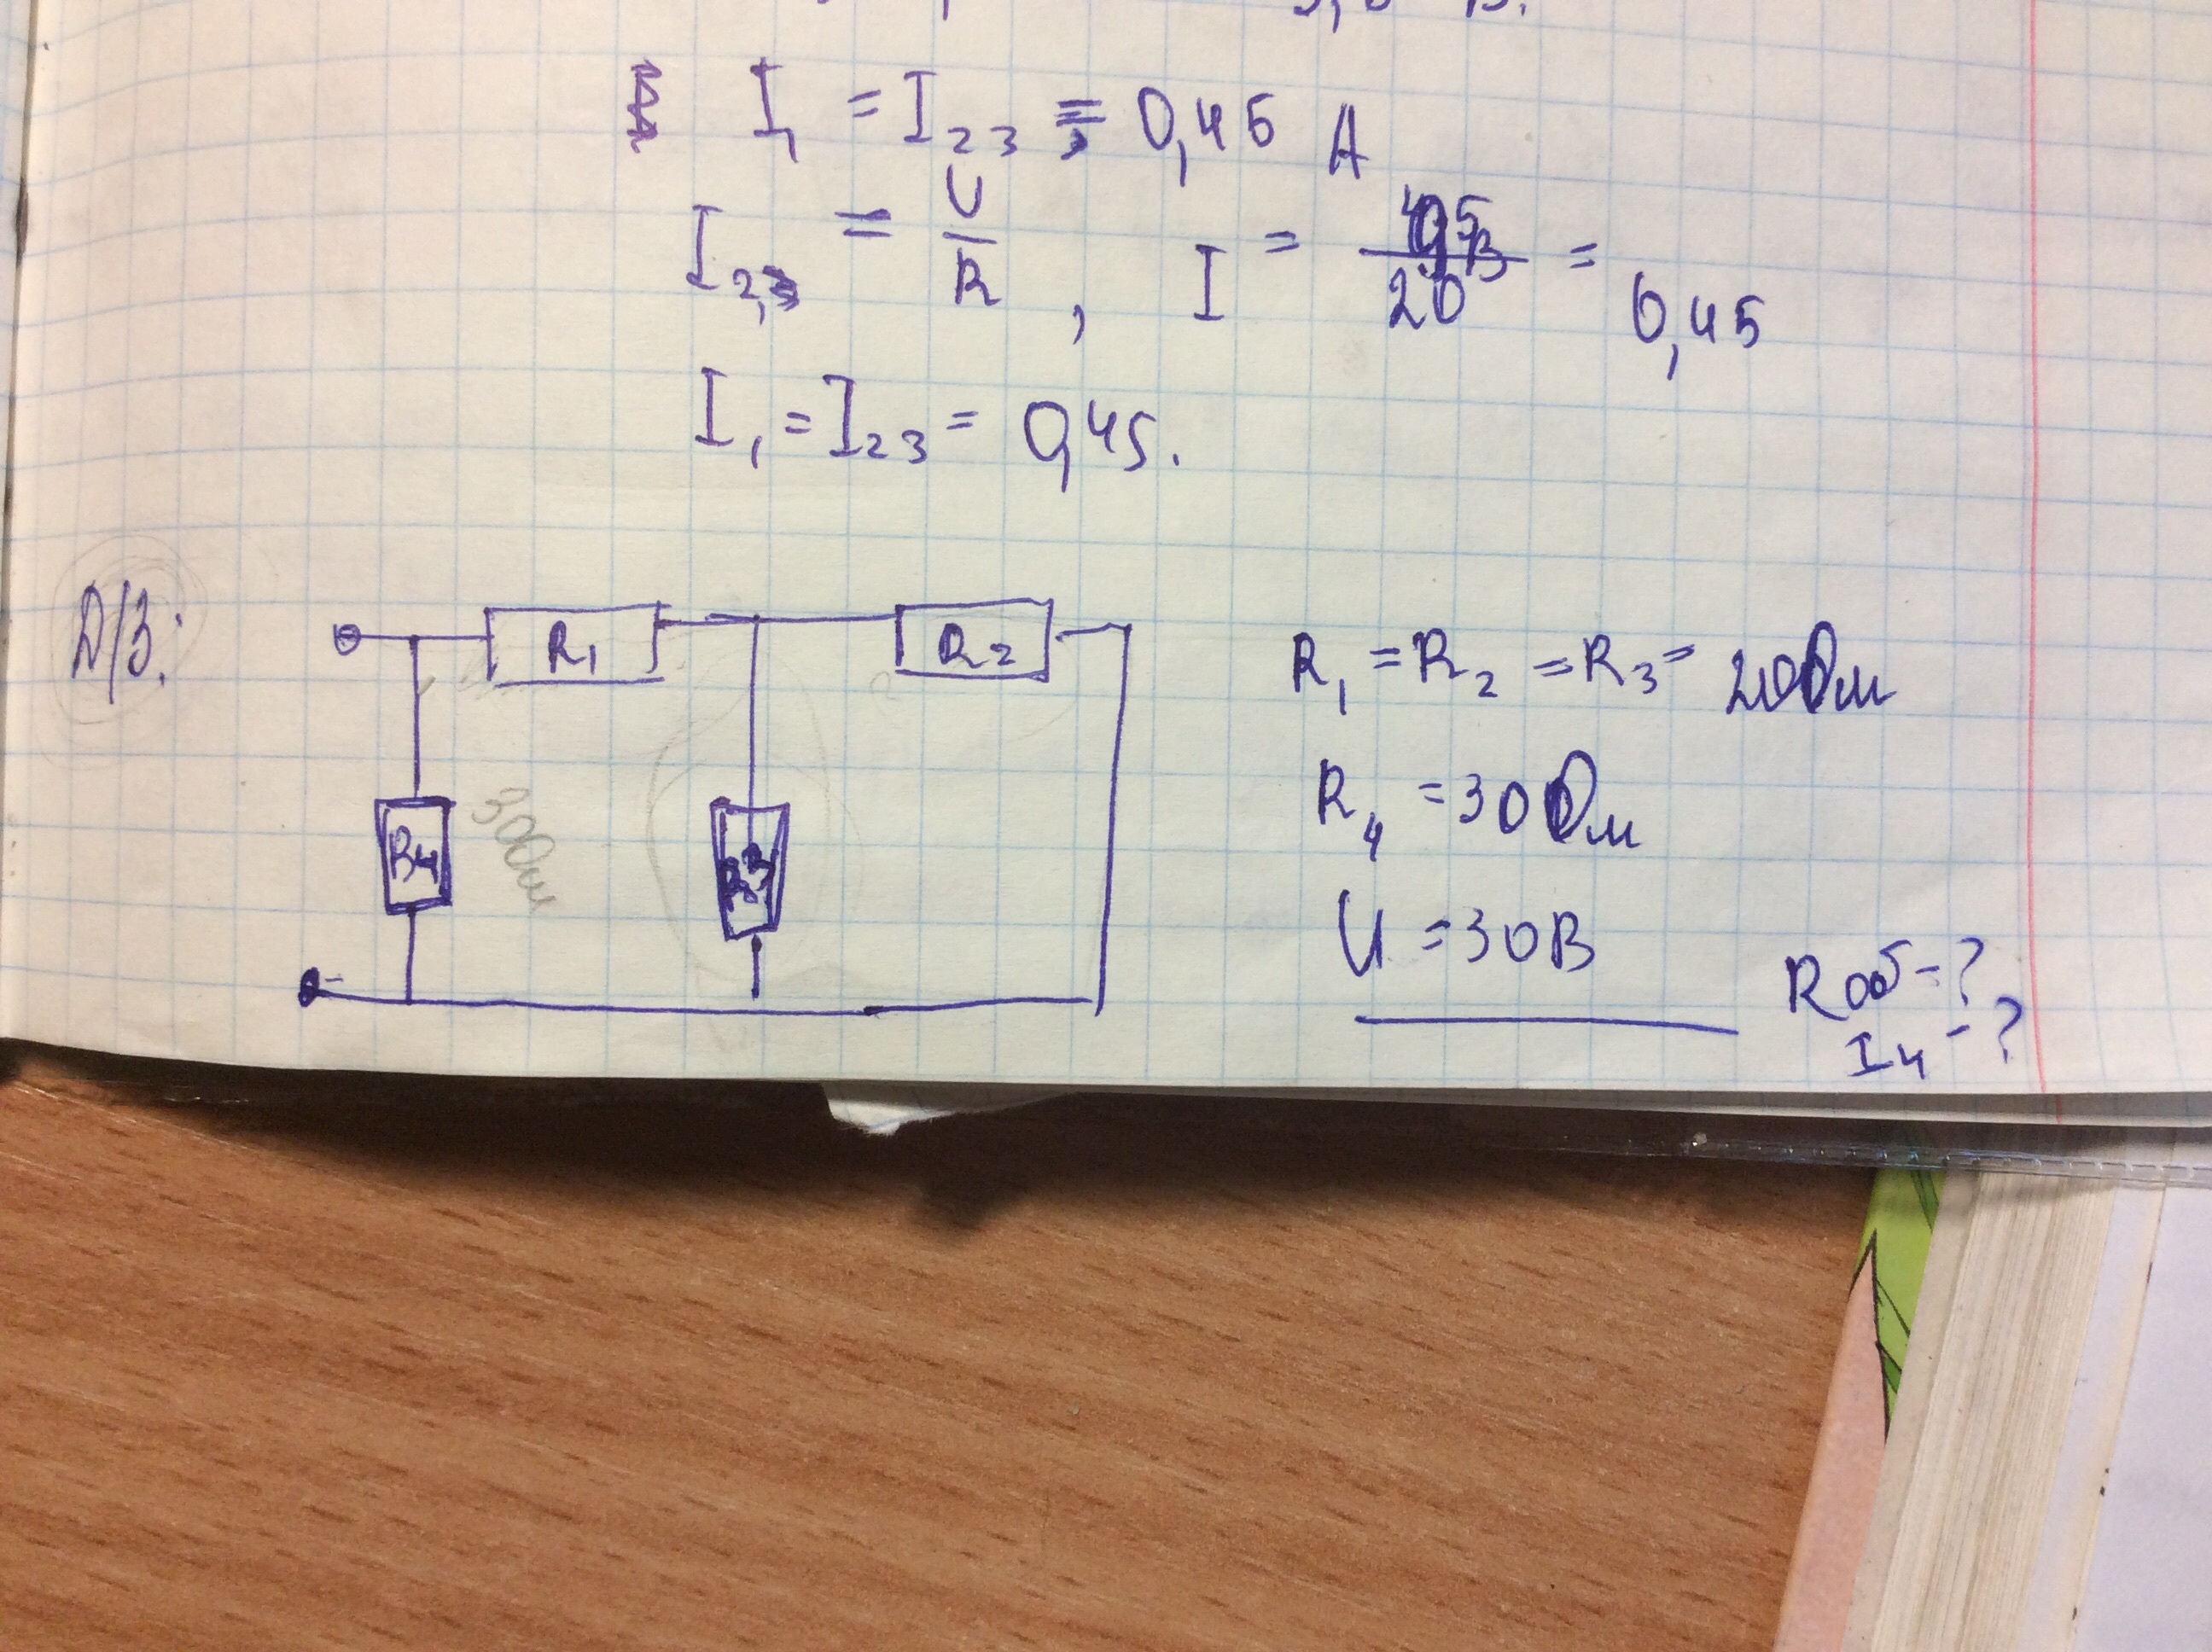 I₁ = I₂₃ = 0,45 A
I₂,₃ = U/R , I = /20 = 0,45
I₁ = I₂₃ = 0,45.
Д/З:
R₁
R₂
R₄
30Ом
R₃
R₁ = R₂ = R₃ = 20Ом
R₄ = 30Ом
U = 30В
Rоб - ?
I₄ - ?